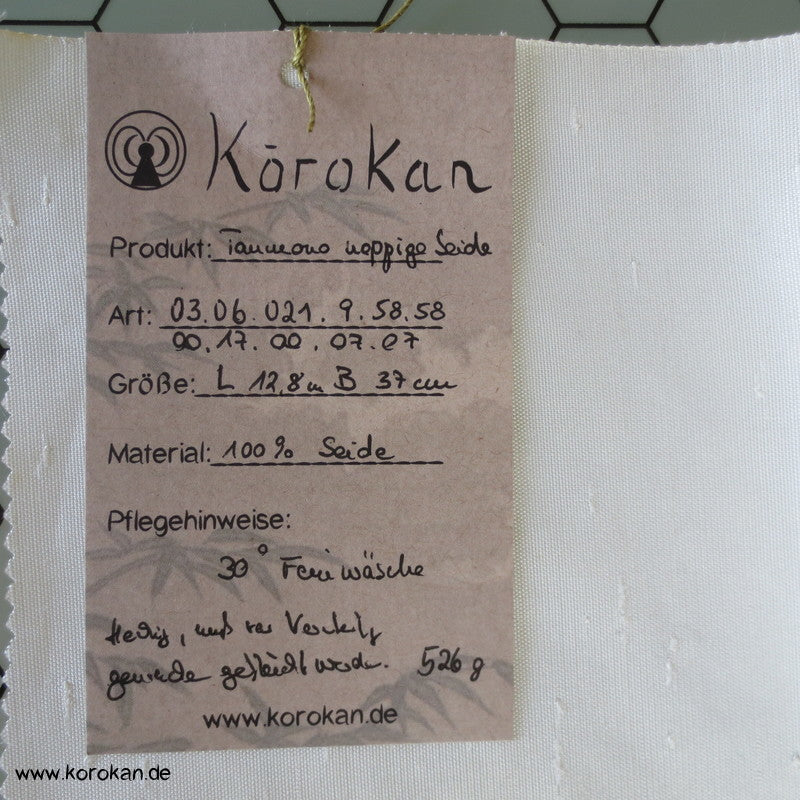 Kōrokan
Produkt: Tanmono noppige Seide
Art: 03.06.021.9.58.58
00.17.00.07.07
Größe: L 12,8m B 37cm
Material: 100% Seide
Pflegehinweise:
30° Feinwäsche
muß vor
werden. 526g
www.korokan.de
www.korokan.de